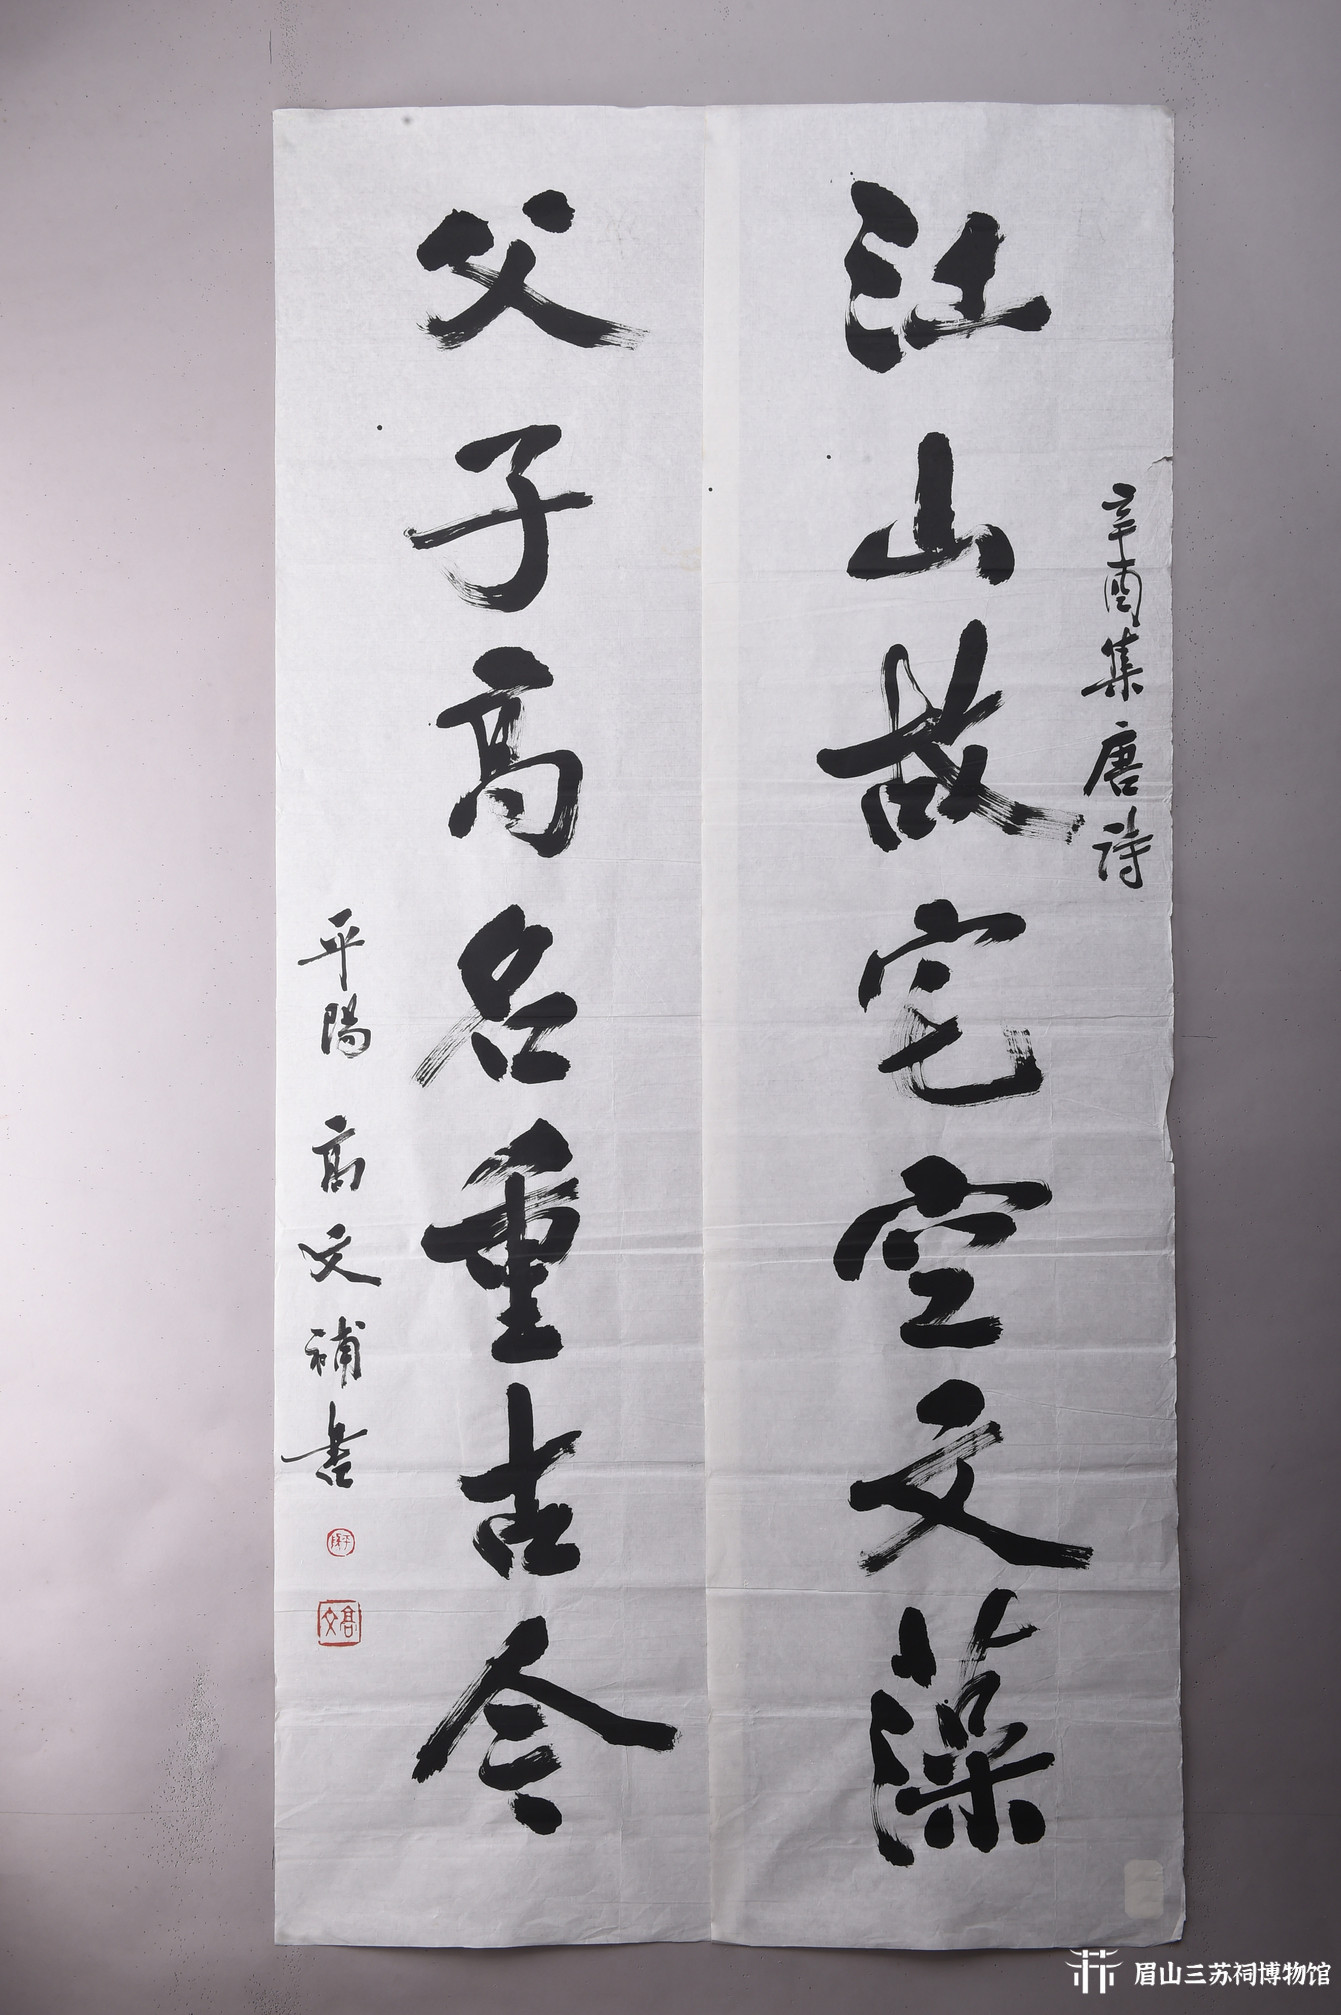 辛酉集唐詩
江山故宅空文藻
父子高名重古今
平陽高文補書
高文
眉山三苏祠博物馆